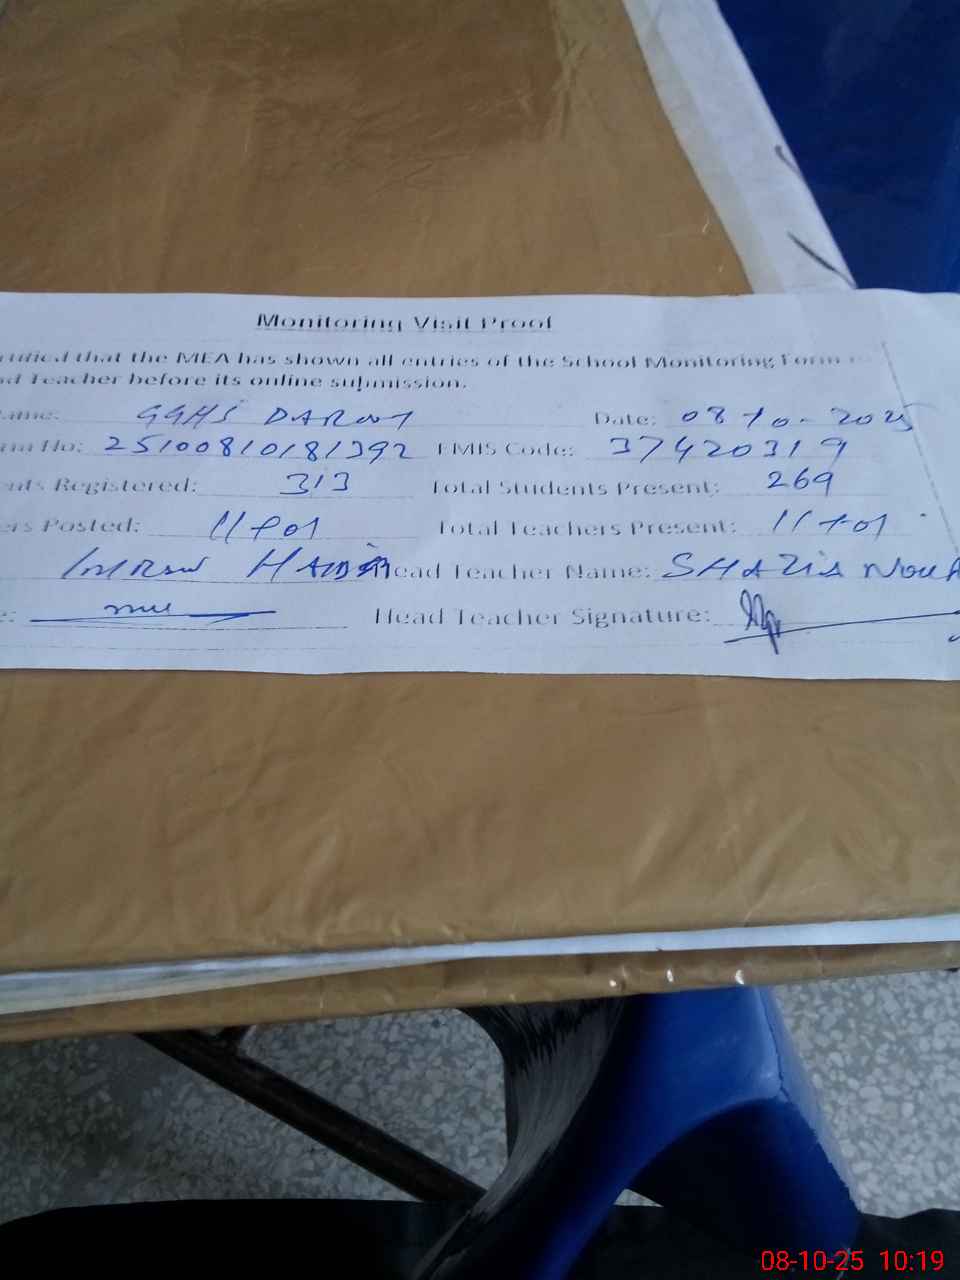 Monitoring Visit Proof
rtified that the MEA has shown all entries of the School Monitoring Form to
ad Teacher before its online submission.
ame: GGHS DAROOT Date: 08-10-2025
rm No: 25100810181392 EMIS Code: 37420319
ents Registered: 313 Total Students Present: 269
ers Posted: 11+01 Total Teachers Present: 11+01
Imran Head Teacher Name: SHAZIA
e: Head Teacher Signature:
08-10-25 10:19